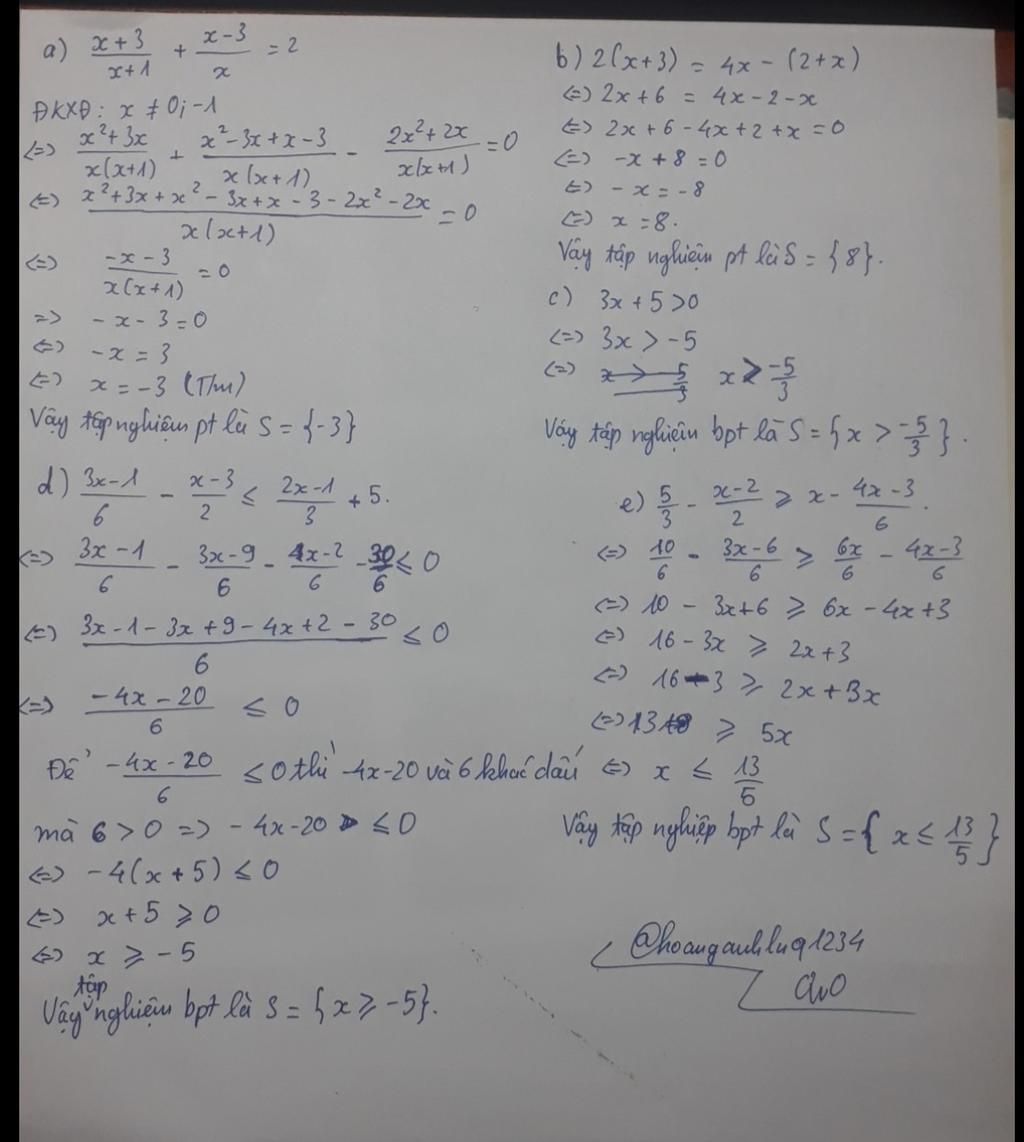 a) \frac{x+3}{x+1} + \frac{x-3}{x} = 2
ĐKXĐ: x ≠ 0; -1
<=> \frac{x²+3x}{x(x+1)} + \frac{x²-3x+x-3}{x(x+1)} - \frac{2x²+2x}{x(x+1)} = 0
<=> \frac{x²+3x+x²-3x+x-3-2x²-2x}{x(x+1)} = 0
<=> \frac{-x-3}{x(x+1)} = 0
=> -x-3=0
<=> -x = 3
<=> x = -3 (Tm)
Vậy tập nghiệm pt là S = {-3}
b) 2(x+3) = 4x - (2+x)
<=> 2x+6 = 4x-2-x
<=> 2x+6-4x+2+x=0
<=> -x+8=0
<=> -x=-8
<=> x=8.
Vậy tập nghiệm pt là S = {8}.
c) 3x+5>0
<=> 3x > -5
<=> x > \frac{-5}{3}
Vậy tập nghiệm bpt là S = {x > \frac{-5}{3}}.
d) \frac{3x-1}{6} - \frac{x-3}{2} ≤ \frac{2x-1}{3} + 5.
<=> \frac{3x-1}{6} - \frac{3x-9}{6} - \frac{4x-2}{6} - \frac{30}{6} ≤ 0
<=> \frac{3x-1-3x+9-4x+2-30}{6} ≤ 0
<=> \frac{-4x-20}{6} ≤ 0
Để \frac{-4x-20}{6} ≤ 0 thì -4x-20 và 6 khác dấu
mà 6 > 0 => -4x-20 ≤ 0
<=> -4(x+5) ≤ 0
<=> x+5 ≥ 0
<=> x ≥ -5
Vậy tập nghiệm bpt là S = {x ≥ -5}.
e) \frac{5}{3} - \frac{x-2}{2} ≥ x - \frac{4x-3}{6}.
<=> \frac{10}{6} - \frac{3x-6}{6} ≥ \frac{6x}{6} - \frac{4x-3}{6}
<=> 10 - 3x+6 ≥ 6x-4x+3
<=> 16-3x ≥ 2x+3
<=> 16-3 ≥ 2x+3x
<=> 13 ≥ 5x
<=> x ≤ \frac{13}{5}
Vậy tập nghiệp bpt là S = {x ≤ \frac{13}{5}}
@hoanganhlnq1234